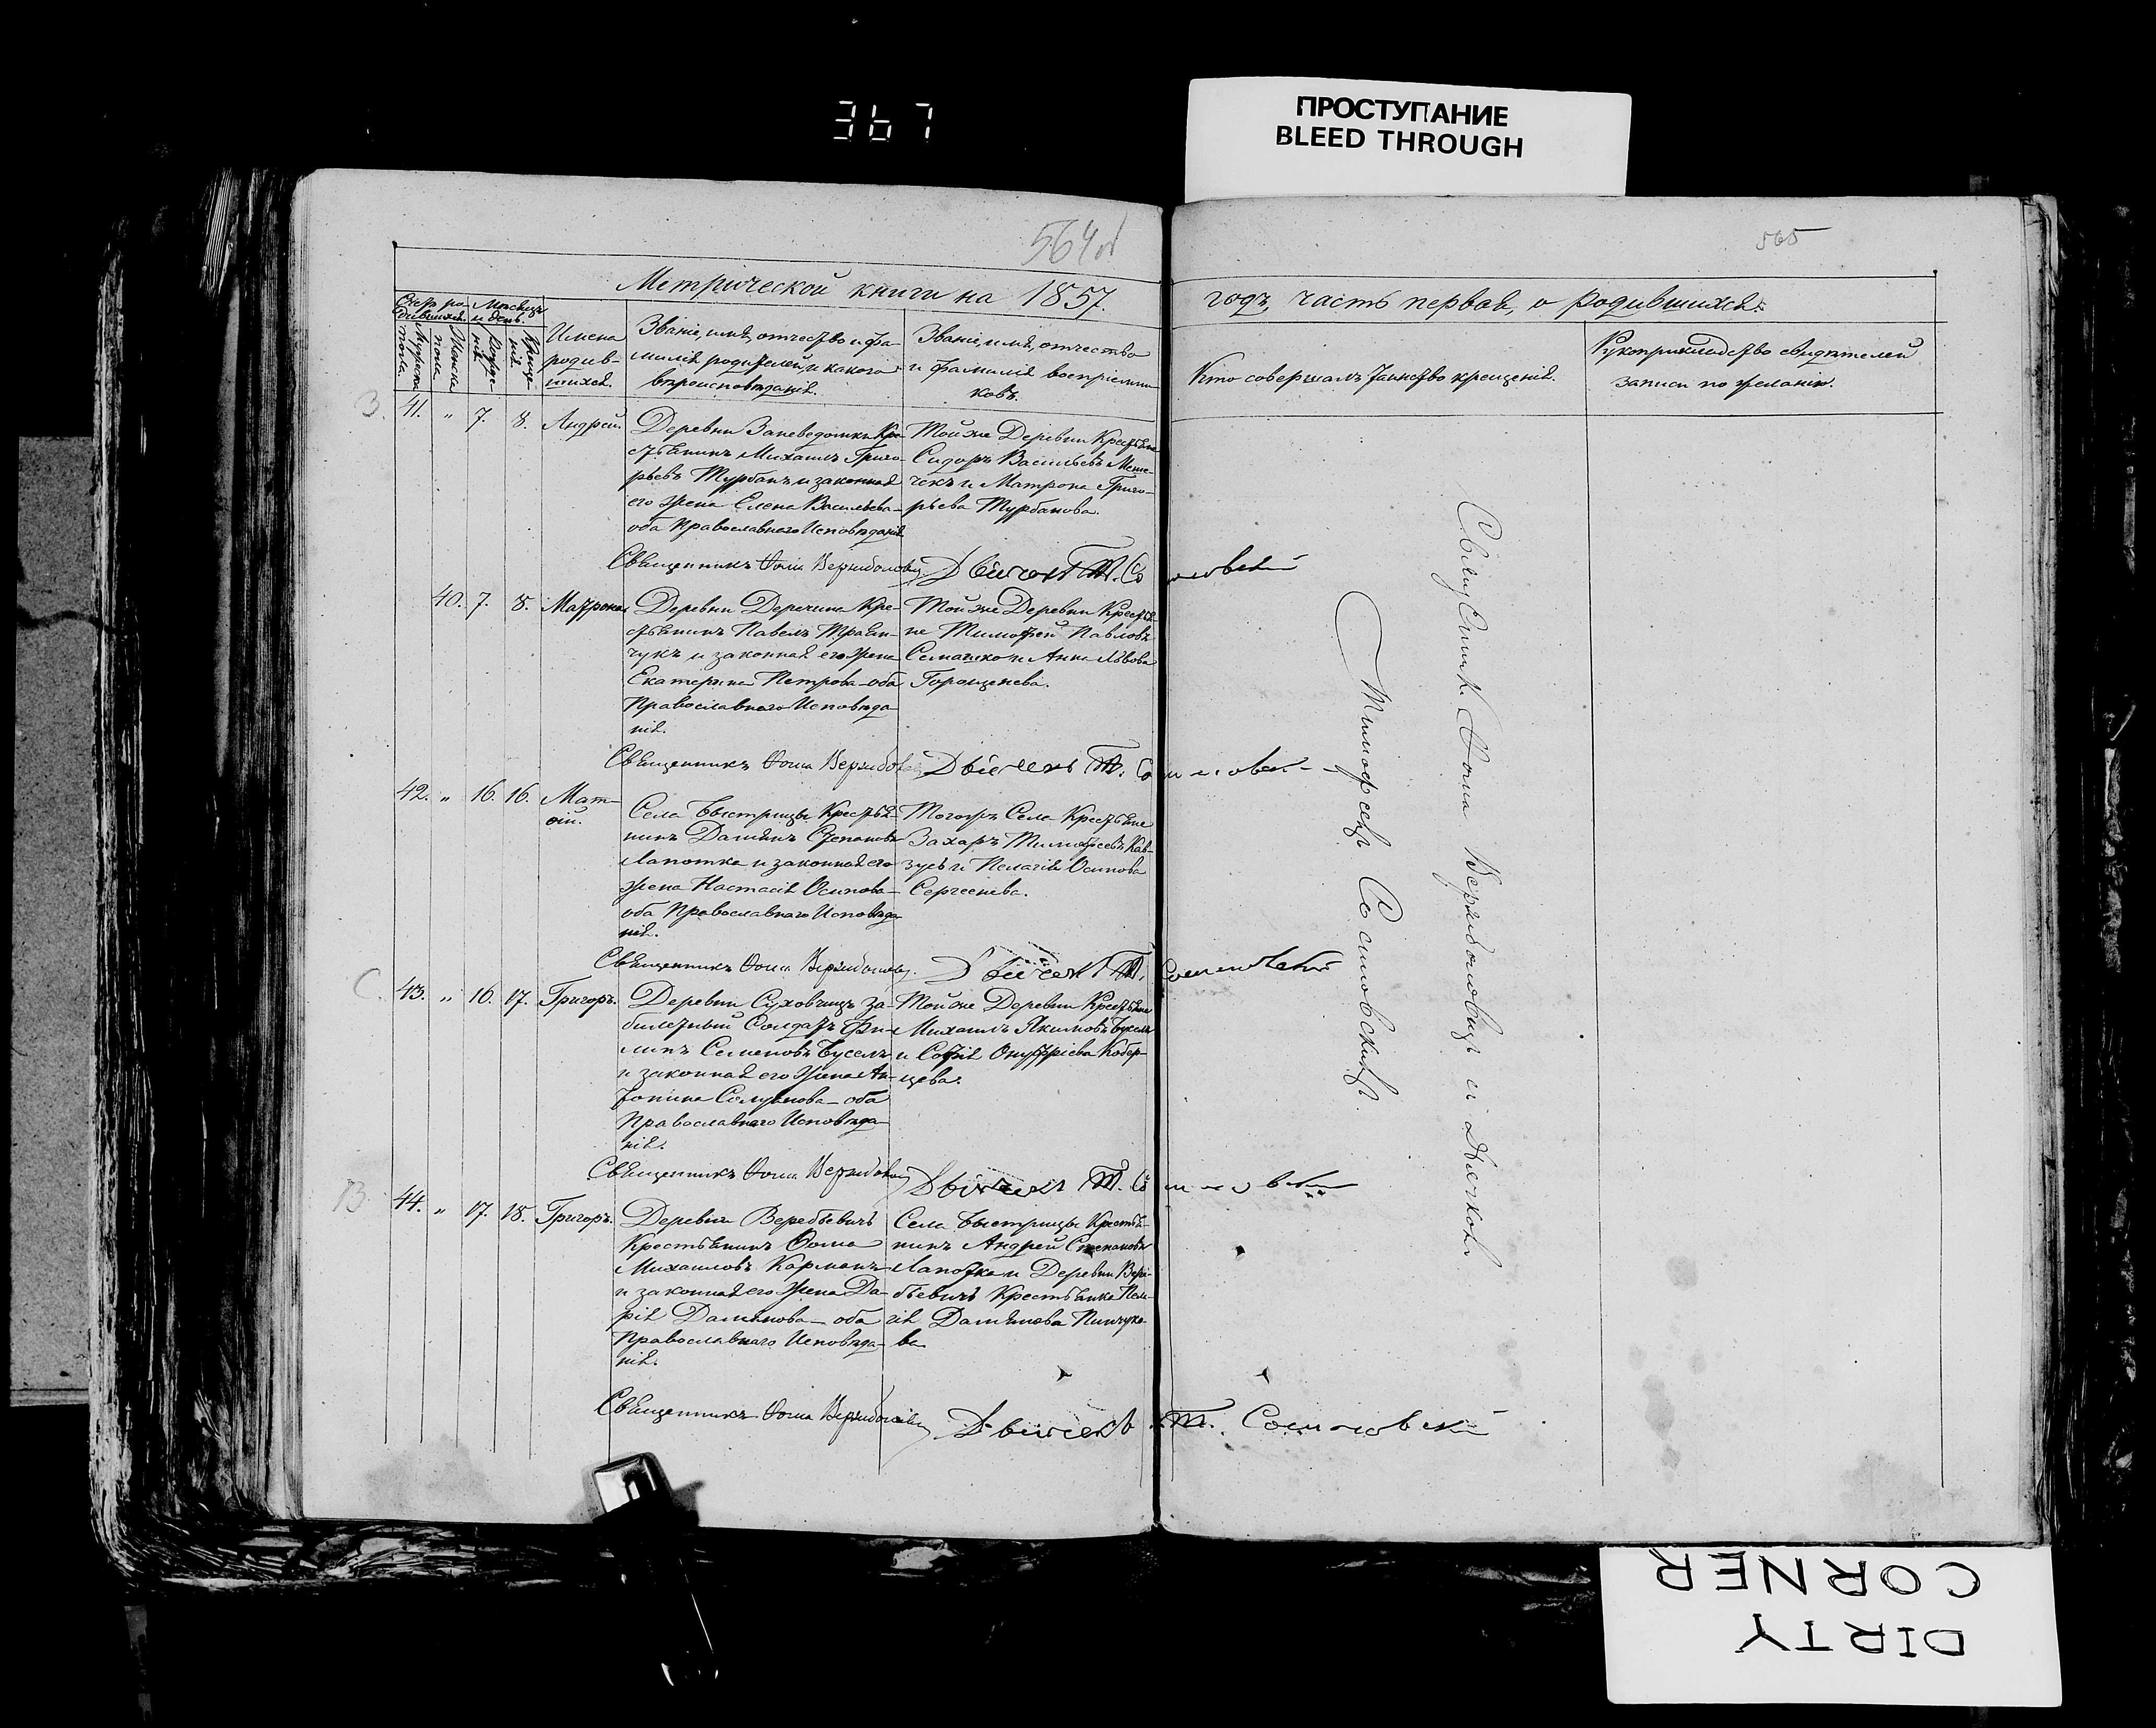 367
ПРОСТУПАНИЕ
BLEED THROUGH
565
Метрической книги на 1857.
годъ, часть первая, о родившихся.
Счетъ ро-
дившихся.
Мѣсяцъ
и день.
Мужска
пола.
Женска
пола
Рожде-
нія.
Креще-
нія.
Имена
родив-
шихся.
Званіе, имя, отчество и фа-
милія родителей и какого
вѣроисповѣданія.
Званіе, имя, отчество
и фамилія воспріемни-
ковъ.
Кто совершалъ таинство крещенія.
Рукоприкладство свидѣтелей
записи по желанію.
В. 41. " 7. 8. Андрей.
Деревни Заневедомки Кре-
стьянинъ Михаилъ Григо-
рьевъ Турбанъ и законная
его жена Елена Васильева
оба Православнаго Исповѣданія
Тойже Деревни Крестьяне
Сидоръ Васильевъ
и Матрона Григо-
рьева Турбанова.
Священникъ Ѳома Вержболовичъ Дьячекъ Т. Сосиновскій
40. 7. 8. Матрона
Деревни Деречина Кре-
стьянинъ Павелъ
и законная его жена
Екатерина Петрова оба
Православнаго Исповѣда-
нія.
Тойже Деревни Крестья-
не Тимофей Павловъ
Семашко и Анна Львова
Горощенева.
Священникъ Ѳома Вержболовичъ Дьячекъ Т. Сосиновскій
42. " 16. 16. Мат-
ѳій.
Села Быстрицы Крестья-
нинъ Даміянъ Степановъ
Лапотка и законная его
жена Настасія Осипова
оба Православнаго Исповѣда-
нія.
Тогожъ Села Крестьяне
Захаръ Тимофеевъ Кав-
зусь и Пелагія Осипова
Сергеенева.
Священникъ Ѳома Вержболовичъ. Дьячекъ Т. Сосиновскій
С. 43. " 16. 17. Григорь.
Деревни Суховчицъ за-
билетный Солдатъ Фи-
липъ Семеновъ Буселъ
и законная его жена Ан-
тонина оба
Православнаго Исповѣда-
нія.
Тойже Деревни Крестьяне
Михаилъ Якимовъ Буселъ
и Софія Онуффріева Кобер-
цева.
Священникъ Ѳома Вержболовичъ Дьячекъ Т. Сосиновскій
В 44. " 17. 18. Григорь.
Деревни Веребьевичъ
Крестьянинъ Ѳома
Михаиловъ Карманъ
и законная его жена Да-
рія Даміянова оба
Православнаго Исповѣда-
нія.
Села Быстрицы Крестья-
нинъ Андрей Степановъ
Лапотка и Деревни Вере-
бьевичъ Крестьянка Пела-
гія Даміянова Пинчуко-
ва
Священникъ Ѳома Вержболовичъ Дьячекъ Т. Сосиновскій
Священник. Ѳома Вержболовичъ и Дьячекъ
Тимофей Сосиновскій.
DIRTY
CORNER